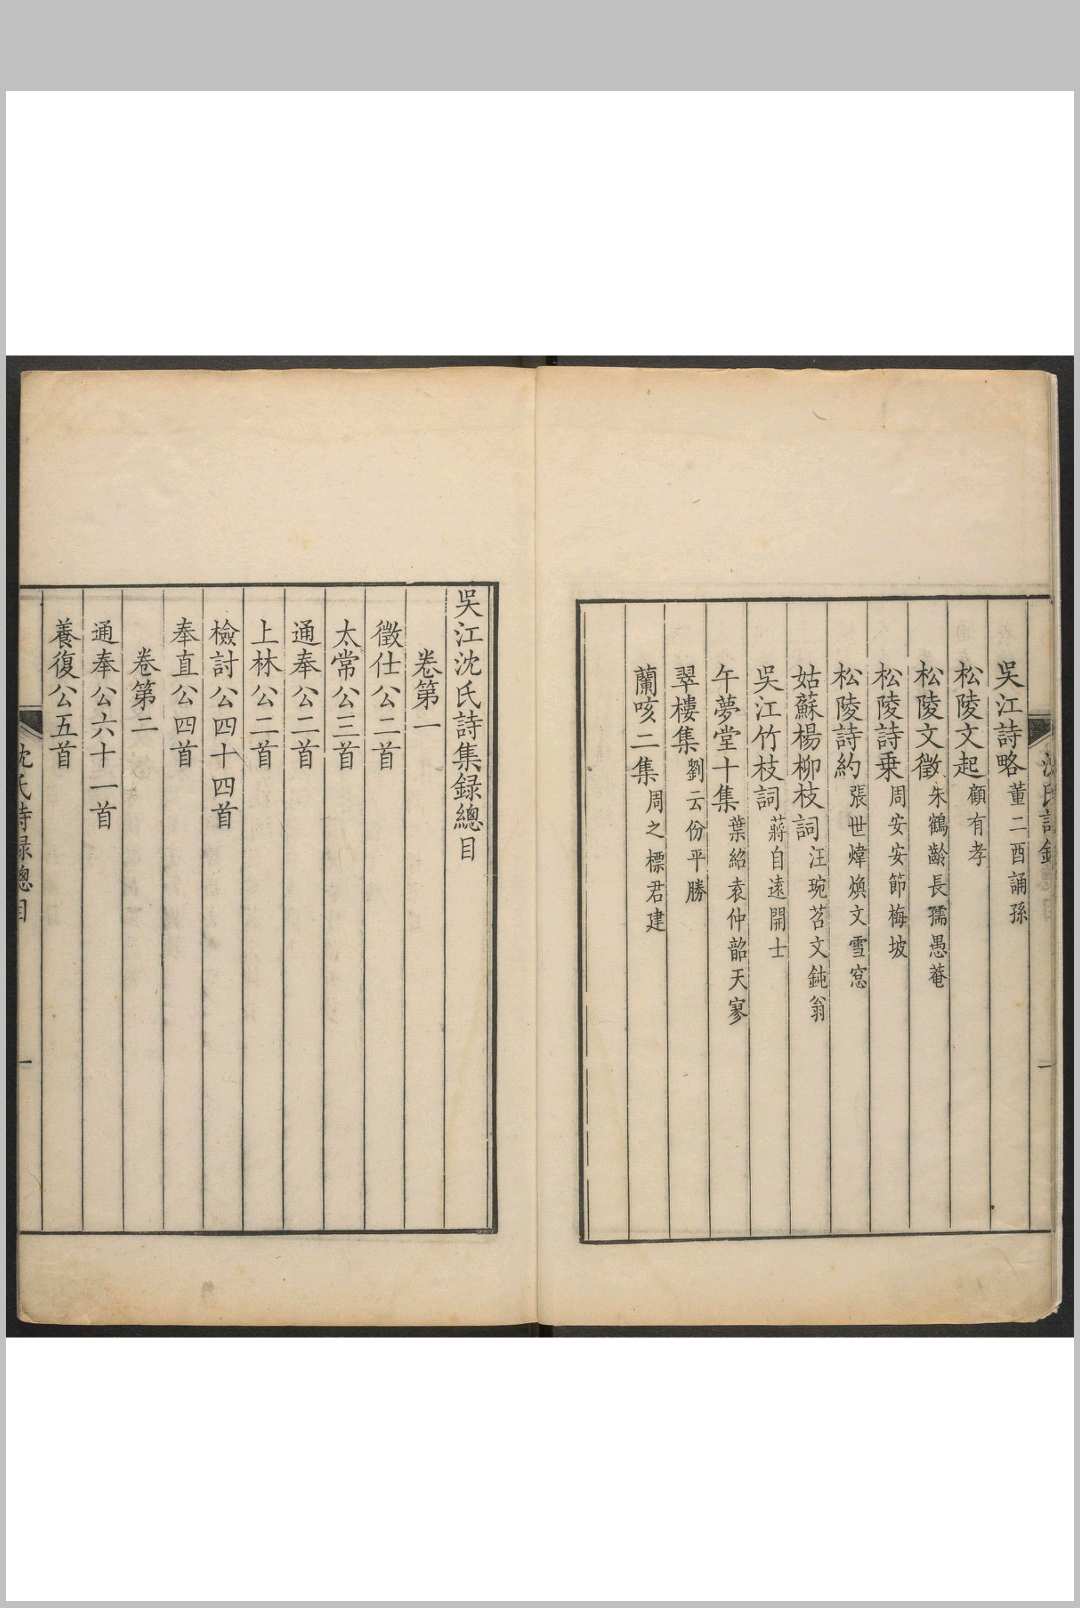 吳江詩略董二酉誦孫
松陵文起顧有孝
松陵文徵朱鶴齡長孺愚菴
松陵詩乗周安安節梅坡
松陵詩約張世煒煥文雪窓
姑蘇楊柳枝詞汪琬苕文鈍翁
吳江竹枝詞蔣自遠開士
午夢堂十集葉紹袁仲韶天寥
翠樓集劉云份平勝
蘭咳二集周之標君建
吳江沈氏詩集録總目
卷第一
徵仕公二首
太常公三首
通奉公二首
上林公二首
檢討公四十四首
奉直公四首
卷第二
通奉公六十一首
養復公五首
沈氏詩録總目
一